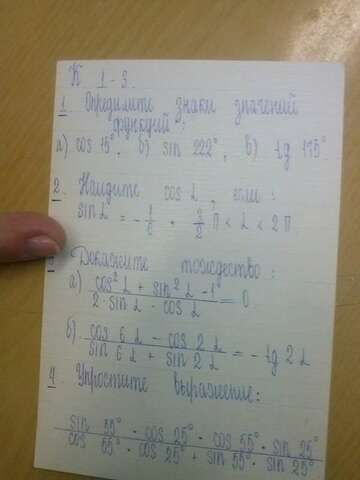 К 1-3.
1. Определите знаки значений
функций:
а) cos 15°, б) sin 222°, в) tg 175°
2. Найдите cos L, если:
sin L = -1/6, 3/2 П < L < 2 П
3. Докажите тождество:
а) cos² L + sin² L - 1 / 2 · sin L - cos L = 0
б) cos 6 L - cos 2 L / sin 6 L + sin 2 L = - tg 2 L
4. Упростите выражение:
sin 55° · cos 25° · cos 55° · sin 25°
cos 55° · cos 25° + sin 55° · sin 25°